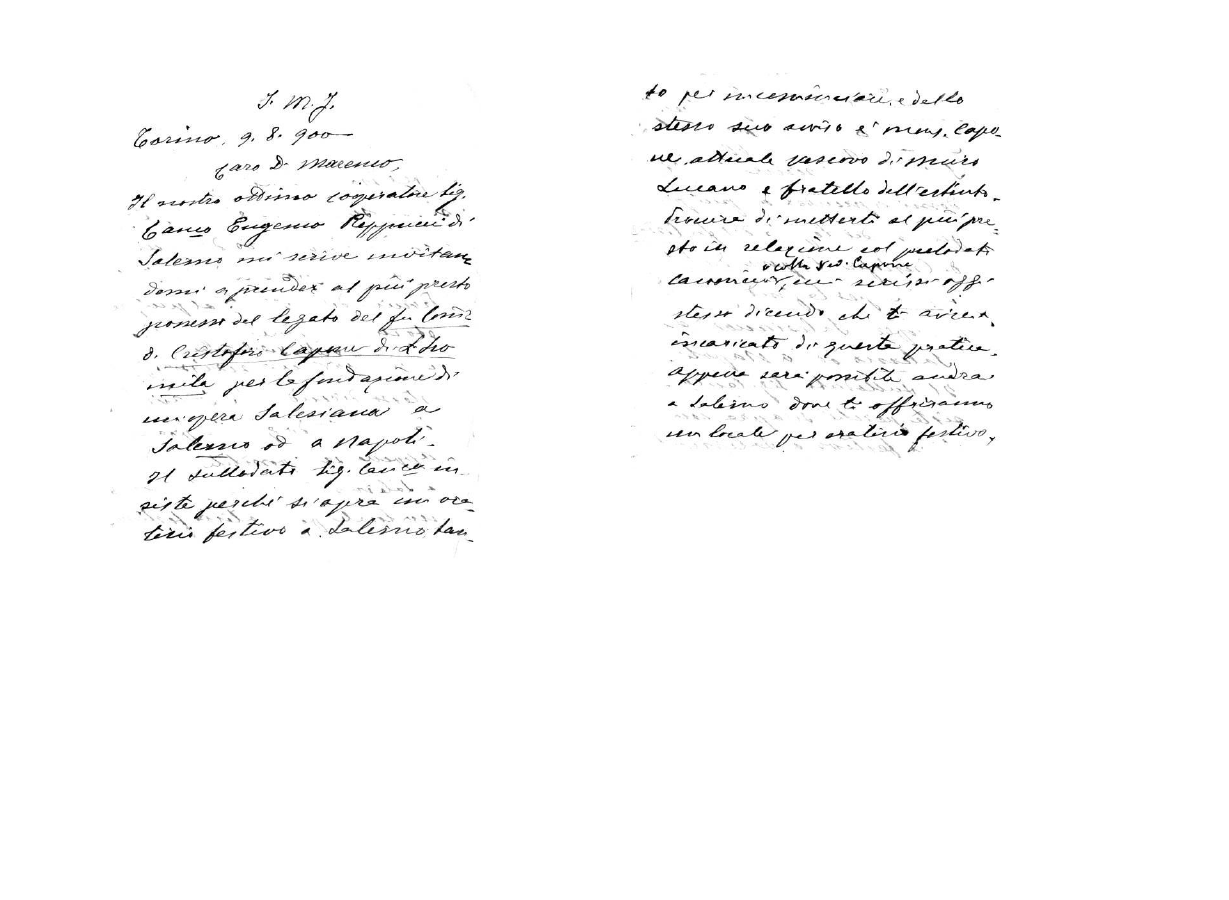 J. M. J.
Torino, 9. 8. 900
Caro D. Marenco,
Il nostro ottimo cooperatore Sig.
Canco Eugenio Reppucci di
Salerno mi scrive invitan-
domi a prender al più presto
possesso del legato del fu
D. Cristoforo Capone di
per la fondazione di
un'opera Salesiana a
Salerno od a Napoli.
Il sullodato Sig. Canco in-
siste perché si apra un ora-
torio festivo a Salerno tan-
to per incominciare, e dello
stesso suo avviso è mons. Capo-
ne, attuale vescovo di Muro
Lucano e fratello dell'estinto.
Procura di metterti al più pre-
sto in relazione col prelodato
canonico, o colla Capone
mi scrisse oggi
stesso dicendo che t'avea
incaricato di questa pratica.
Appena sarà possibile andrai
a Salerno dove ti offriranno
un locale per oratorio festivo,